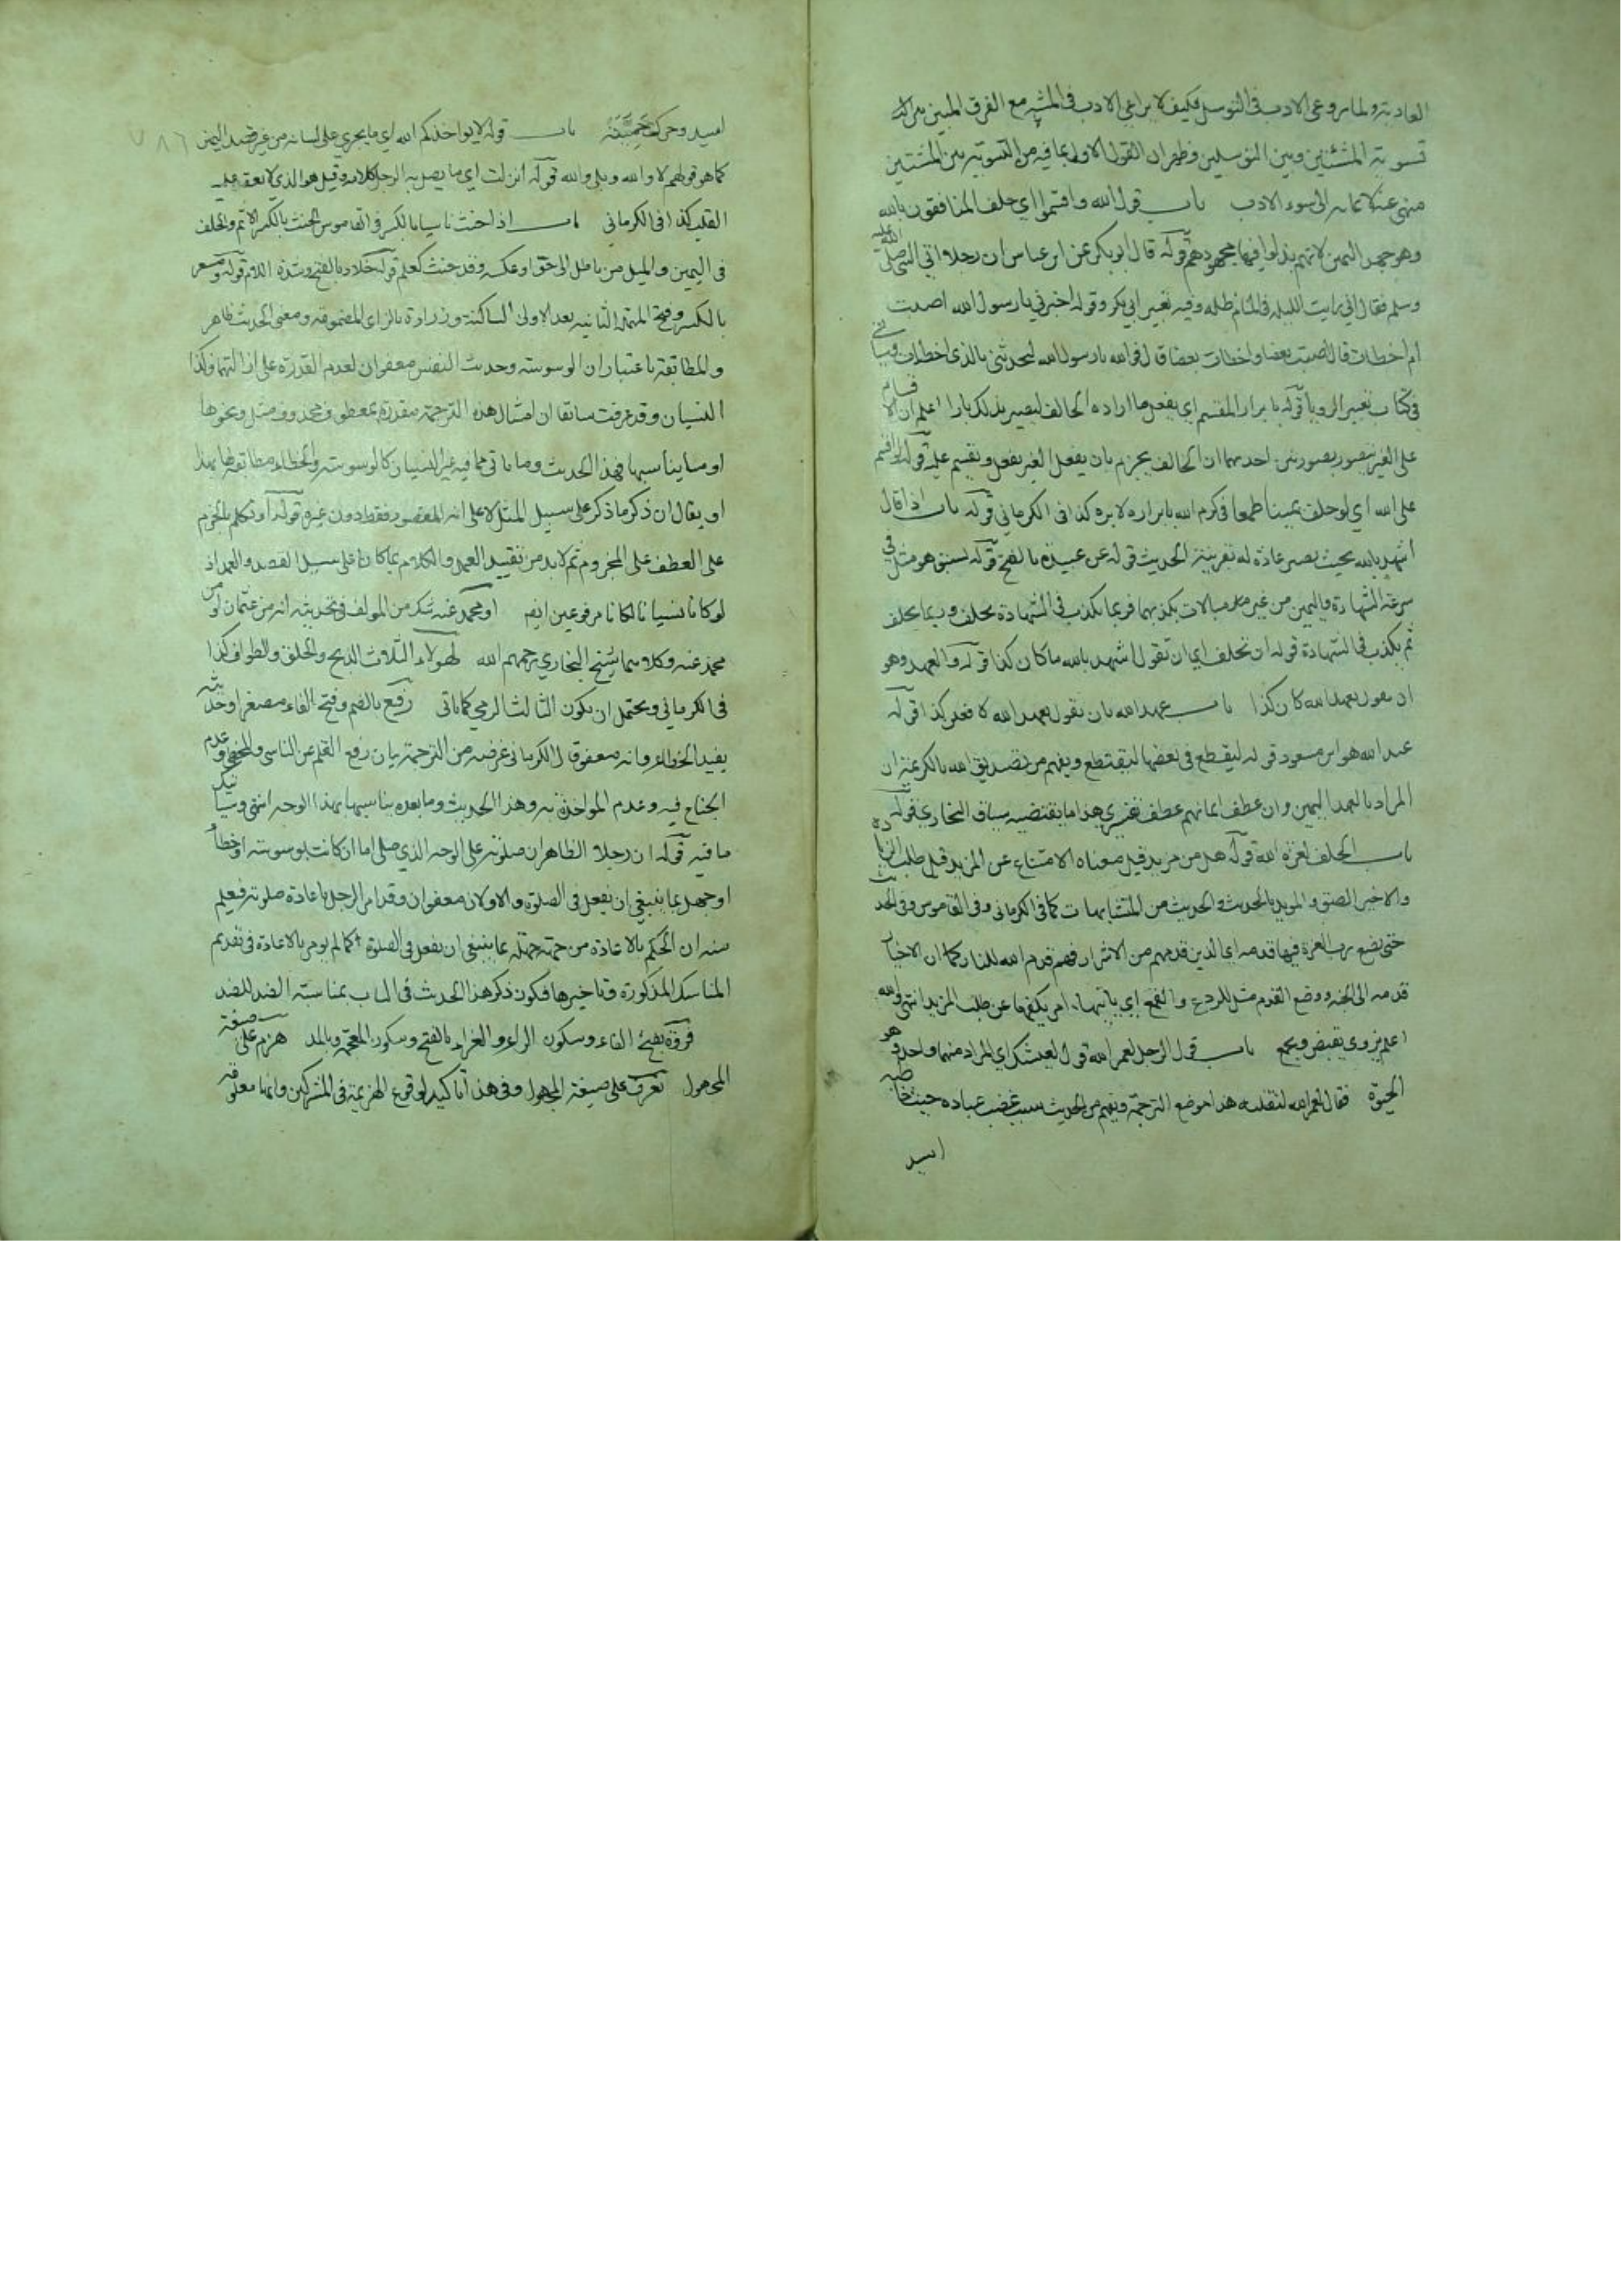 العادية ولما روعى الادب فى التوسل فكيف لا يراعى الادب فى المشية مع الفرق المبين
تسوية المشيئتين وبين التوسلين فظهر ان القول الاول بما فيه من التسوية بين المشيتين
منهى عنه لسوء الادب باب قول الله واقسموا اي حلف المنافقون بالله
وهو جهد اليمين لانهم بذلوا فيها مجهودهم قوله قال ابو بكر عن ابن عباس ان رجلا اتى النبي صلى الله عليه
وسلم فقال اني رايت الليلة فى المنام ظلة وفيه تعبير ابي بكر وقوله اخبرني يا رسول الله اصبت
ام اخطات قال اصبت بعضا واخطات بعضا قال فوالله يا رسول الله لتحدثني بالذي اخطات وسياتي
فى كتاب تعبير الرويا قوله بابرار المقسم اي بفعل ما اراده الحالف ليصير بذلك بارا اعلم ان الاقسام
على الغير يتصور بصورتين احدهما ان الحالف يجزم بان يفعل الغير بفعل ويقسم عليه قوله لو اقسم
على الله اي لو حلف يمينا طمعا فى كرم الله بابراره لابره كذا فى الكرماني قوله باب اذا قال
اشهد بالله بحيث يصير عادة له بقرينة الحديث قوله عن عبيدة بالفتح قوله تسبق هو مثل فى
سرعة الشهادة واليمين من غير مبالات بكذبهما فربما يكذب فى الشهادة بحلف وربما يحلف
ثم يكذب فى الشهادة قوله ان نحلف اي ان تقول اشهد بالله ما كان كذا قوله والعهد وهو
ان يقول بعهد الله كان كذا باب عهد الله بان يقول بعهد الله لافعلن كذا قوله
عبد الله هو ابن مسعود قوله ليقطع فى بعضها ليقتطع ويفهم من تصديق الله بالكريمة ان
المراد بالعهد اليمين وان عطف ايمانهم عطف تفسيري هذا ما يقتضيه سياق البخاري قوله
باب الحلف بعزة الله قوله هل من مزيد قيل معناه الامتناع عن المزيد قيل طلب الزيادة
والاخير الصق والمويد بالحديث والحديث من المتشابهات كما فى الكرماني وفى القاموس وفى الحديث
حتى يضع رب العزة فيها قدمه اي الذين قدمهم من الاشرار فهم قدم الله للنار كما ان الاخيار
قدمه الى الجنة ووضع القدم مثل للردع والقمع اي ياتيها امر يكفها عن طلب المزيد انتهى والله
اعلم يزوى يقبض ويجمع باب قول الرجل لعمر الله قوله لعيشك اي المراد منهما واحد وهو
الحيوة فقال لعمر الله لنقتلنه هذا موضع الترجمة ويفهم من الحديث سبب غضب عباده حيث خاطبه
اسيد
اسيد وحركت حمية باب قوله لا يواخذكم الله اي ما يجري على لسانه من غير قصد اليمين
كما هو قولهم لا والله وبلى والله قوله انزلت اي ما يصل به الرجل كلامه وقيل هو الذي لا يعقد عليه
القلب كذا فى الكرماني باب اذا حنث ناسيا بالكسر فى القاموس الحنث بالكسر الاثم والخلف
فى اليمين والميل من باطل الى حق او عكسه وقد حنث كعلم قوله خلاد بالفتح وشدة اللام قوله مسعر
بالكسر وفتح المهملة الثانيه بعد الاولى الساكنة وزرارة بالزاى المضمومة ومعنى الحديث ظاهر
والمطابقة باعتبار ان الوسوسة وحديث النفس معفوان لعدم القدرة على ازالتهما وكذا
النسيان وقد عرفت سابقا ان امثال هذه الترجمة مقدرة بمعطوف محذوف ومثل ونحوها
او ما يناسبها فهذا الحديث وما ياتى مما فيه غير النسيان كالوسوسة والخطاء مطابقتها بهذا
او يقال ان ذكر ما ذكر على سبيل المثل لا على انه المقصود فقط دون غيره قوله او تكلم بالجزم
على العطف على المجزوم ثم لا بد من تقييد العمل والكلام بما كانا على سبيل القصد والعمد اذ
لو كانا نسيانا لكانا مرفوعين ايضا او محمد عنه شك من المولف فى تحديثه انه من عثمان او من
محمد عنه وكلاهما شيخ البخاري رحمهم الله لهولاء الثلاث الذبح والحلق والطواف كذا
فى الكرماني ويحتمل ان يكون الثالث الرمي كما ياتى رفيع بالضم وفتح الفاء مصغرا وحديثه
يفيد الخطاء وانه معفو قال الكرماني غرضه من الترجمة بيان رفع القلم عن الناسي والمخطي وعدم
الجناح فيه وعدم المواخذة به وهذا الحديث وما بعده يناسبها بهذا الوجه انتهى وسياتيك
ما فيه قوله ان رجلا الظاهر ان صلوته على الوجه الذي صلى اما ان كانت لوسوسة او خطأ
او جهل بما ينبغي ان يفعل فى الصلوة والاولان معفوان وقد امر الرجل باعادة صلوته فيعلم
منه ان الحكم بالاعادة من جهة جهله عما ينبغي ان يفعل فى الصلوة كما لم يومر بالاعادة فى تقديم
المناسك المذكورة وتاخيرها فكون ذكر هذا الحديث فى الباب بمناسبة الضد للضد
فروة بفتح الفاء وسكون الراء والغراء بالفتح وسكون المعجمة وبالمد هزم على صيغة
المجهول تعرف على صيغة المجهول وفى هذا تاكيد لوقوع الهزيمة فى المشركين وانها معلوم